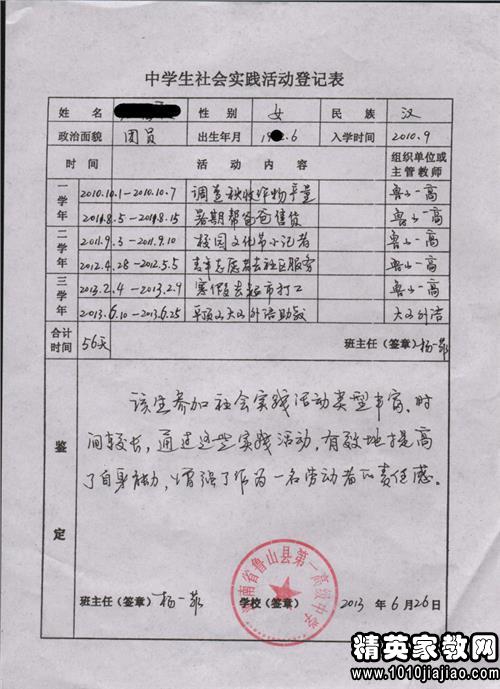 中学生社会实践活动登记表
姓 名 性 别 女 民 族 汉
政治面貌 团员 出生年月 .6 入学时间 2010.9
时 间 活 动 内 容 组织单位或主管教师
一学年 2010.10.1-2010.10.7 调查秋收作物产量 鲁山一高
2011.8.5-2011.8.15 暑期帮爸爸售货 鲁山一高
二学年 2011.9.3-2011.9.10 校园文化节小记者 鲁山一高
2012.4.28-2012.5.5 青年志愿者去社区服务 鲁山一高
三学年 2013.2.4-2013.2.9 寒假去超市打工 鲁山一高
2013.6.10-2013.6.25 平顶山大山外语助教 大山外语
合计时间 56天 班主任（签章）杨一菲
鉴定
该生参加社会实践活动类型丰富，时
间较长，通过这些实践活动，有效地提高
了自身能力，增强了作为一名劳动者的责任感。
河南省鲁山县第一高级中学
班主任（签章）杨一菲 学校（签章） 2013 年 6 月 26 日
精英家教网
www.1010jiajiao.com